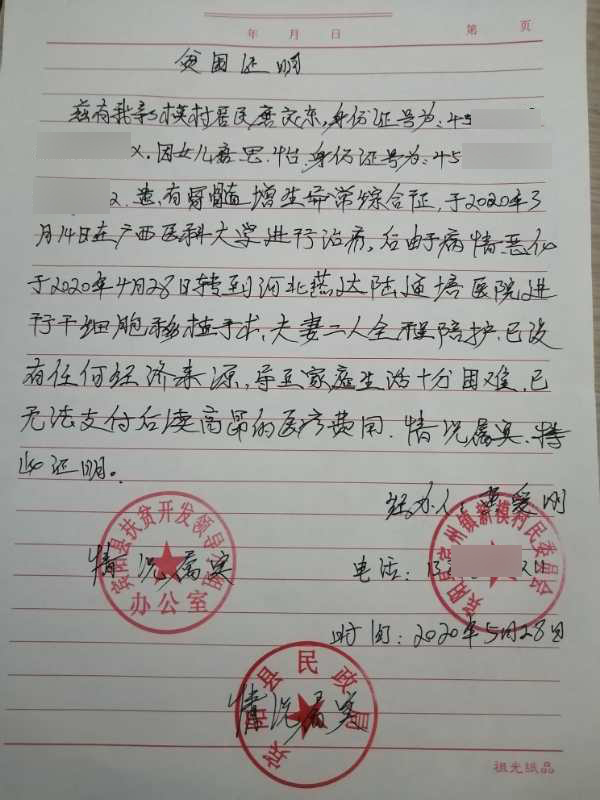 年 月 日
第 页
贫困证明
兹有我新模村居民唐文东,身份证号为:45
X.因女儿唐思 身份证号为:45
2.患有骨髓增生异常综合征,于2020年3
月14日在广西医科大学进行治病,后由于病情恶化
于2020年4月28日转到河北燕达陆道培医院进
行干细胞移植手术,夫妻二人全程陪护,已没
有任何经济来源,导至家庭生活十分困难,已
无法支付后续高昂的医疗费用.情况属实,特
此证明。
经办人: 爱明
宾阳县扶贫开发领导小组
办公室
情况属实
宾阳县宾州镇新模村民委员会
电话:
时间:2020年5月28日
宾阳县民政局
情况属实
祖光纸品